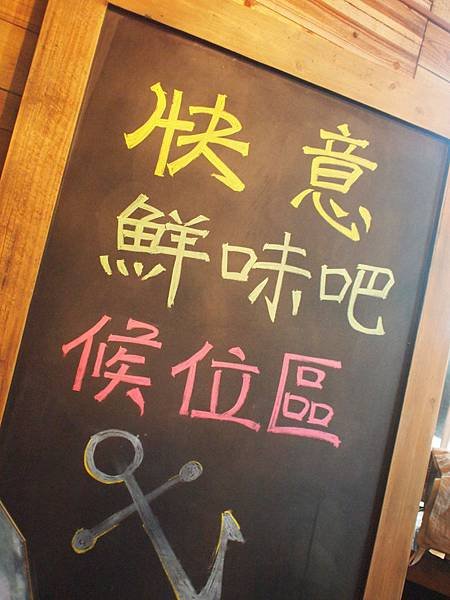 快意
鮮味吧
候位區